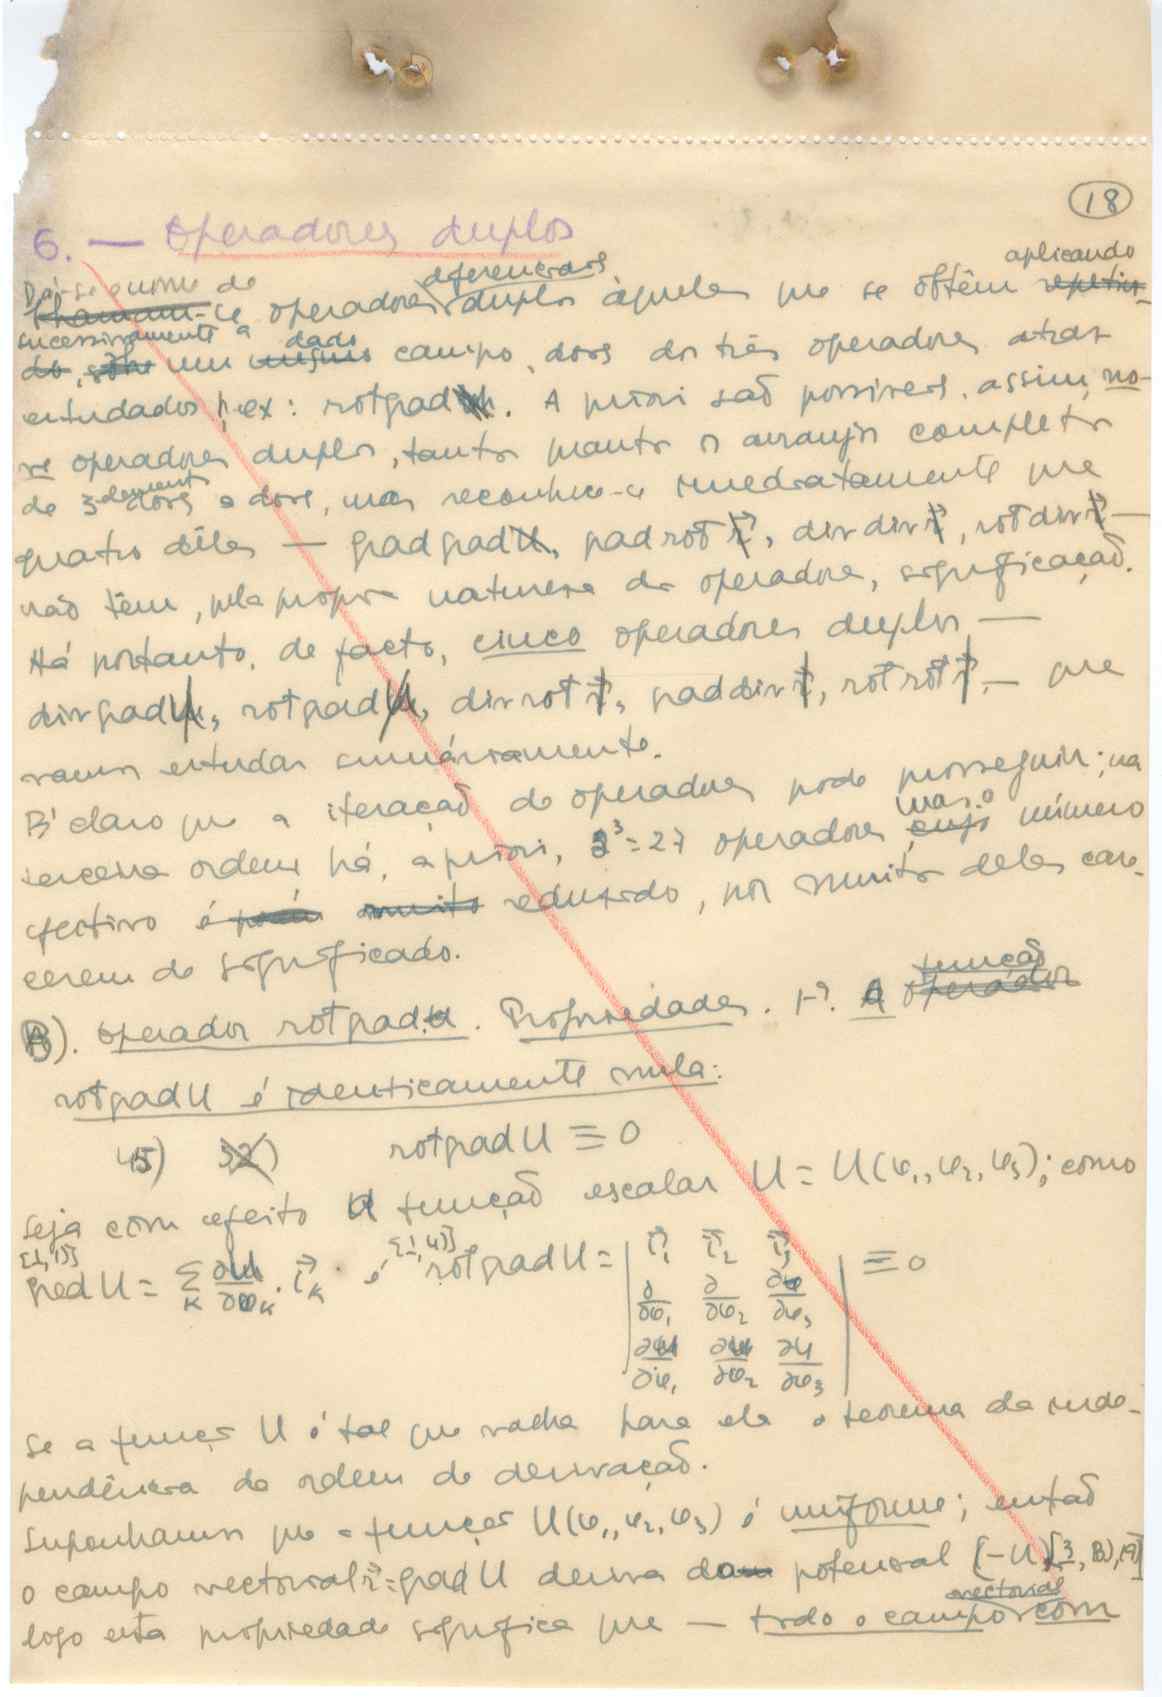 18
6. — Operadores duplos
Dá-se o nome de operadores diferenciais duplos àqueles que se obtêm aplicando
sucessivamente a um dado campo, dois dos três operadores atrás
estudados p. ex: rotgrad. A priori são possíveis, assim, no-
ve operadores duplos, tantos quantos os arranjos completos
de 3 elementos dois a dois, mas reconhece-se imediatamente que
quatro dêles — gradgrad, gradrot, divdiv, rotdiv —
não têm, pela própria natureza dos operadores, significação.
Há portanto, de facto, cinco operadores duplos —
divgrad, rotgrad, divrot, graddiv, rotrot, — que
vamos estudar sumáriamente.
É claro que a iteração de operadores pode prosseguir; na
terceira ordem há, a priori, 3³=27 operadores, mas o número
efectivo é reduzido, por muitos deles care-
cerem de significado.
A). Operador rotgrad. Propriedades. 1ª. A função
rotgradU é identicamente nula:
45) rotgradU ≡ 0
seja com efeito a função escalar U = U(φ₁, φ₂, φ₃); como
[1, 1)] [1, 4)]
grad U = Σ_K ∂U/∂φ_K · i⃗_K é rotgradU = | i⃗₁ i⃗₂ i⃗₃ | ≡ 0
∂/∂φ₁ ∂/∂φ₂ ∂/∂φ₃
∂U/∂φ₁ ∂U/∂φ₂ ∂U/∂φ₃
se a função U é tal que valha para ela o teorema da inde-
pendência da ordem de derivação.
Suponhamos que a função U(φ₁, φ₂, φ₃) é uniforme; então
o campo vectorial r⃗=gradU deriva do potencial (-U) [3, B), 19]
logo esta propriedade significa que — todo o campo vectorial com